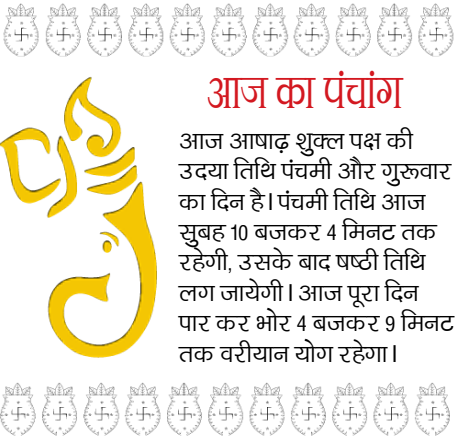 आज का पंचांग
आज आषाढ़ शुक्ल पक्ष की
उदया तिथि पंचमी और गुरूवार
का दिन है। पंचमी तिथि आज
सुबह 10 बजकर 4 मिनट तक
रहेगी, उसके बाद षष्ठी तिथि
लग जायेगी। आज पूरा दिन
पार कर भोर 4 बजकर 9 मिनट
तक वरीयान योग रहेगा।